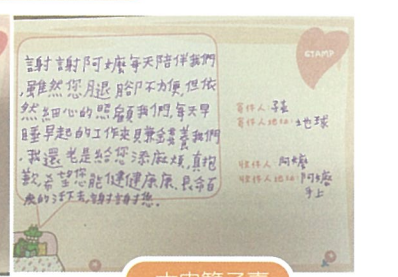 謝謝阿嬤每天陪伴我們
,雖然您腿腳不方便,但依
然細心的照顧我們,每天早
睡早起的工作來賺金養我們
,我還老是給您添麻煩,真抱
歉,希望您能健健康康、長命百
歲的活下去,謝謝謝您。
STAMP
寄件人:子熹
寄件人地址:地球
收件人:阿嬤
收件人地址:阿嬤
手上